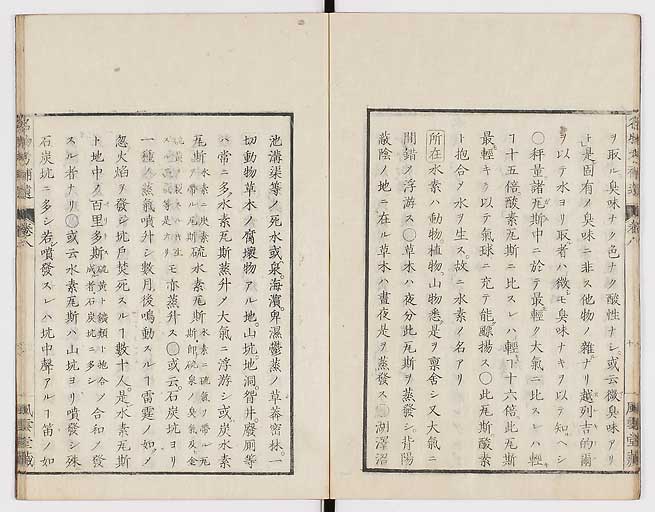 ヲ取ル臭味ナク色ナク酸性ナシ。或云微臭味アリ
ト是固有ノ臭味ニ非ス他物ノ雜ナリ越列吉的爾
ヲ以テ水ヨリ取者ハ微モ臭味ナキヲ以テ知ヘシ
〇秤量諸瓦斯中ニ於テ最輕ク大氣ニ比スレハ輕
ヿ十五倍酸素瓦斯ニ比スレハ輕ヿ十六倍此瓦斯
最輕キヲ以テ氣球ニ充テ能飃揚ス〇此瓦斯酸素
ト抱合ノ水ヲ生ス。故ニ水素ノ名アリ
所在水素ハ動物植物。山物悉是ヲ稟舍シ又大氣ニ
間錯ノ浮游ス〇草木ハ夜分此瓦斯ヲ蒸發シ。背陽
蔽陰ノ地ニ在ル草木ハ晝夜是ヲ蒸發ス〇湖澤沼
池溝渠等ノ死水或泉。海濱。卑濕鬱蒸ノ草莽密林。一
切動物草木ノ腐壞物アル地。山坑地洞眢井廢厠等
ハ常ニ多ク水素瓦斯蒸升ノ大氣ニ浮游シ或炭水素
瓦斯 硫水素瓦斯
モ亦蒸升ス〇或云。石炭坑ヨリ
一種ノ蒸氣噴升シ數月後鳴動スルヿ雷霆ノ如ノ
忽火焰ヲ發シ坑戸焚死スルヿ數十人。是水素瓦斯
ト地中ノ百里多斯 ト抱合ノ合和ノ發
スル者ナリ〇或云水素瓦斯ハ山坑ヨリ噴發シ殊
石炭坑ニ多シ若噴發スレハ坑中聲アルヿ笛ノ如
風雲堂藏